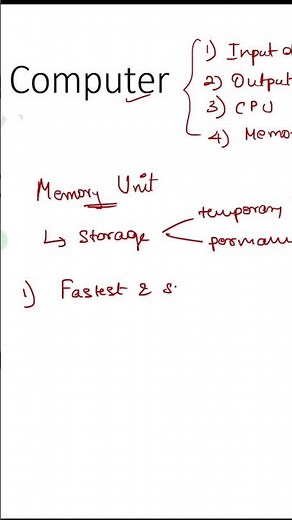 Computer
1) Input
2) Output
3) CPU
4) Memo
Memory Unit
↳ Storage
temporary
perman
1) Fastest & s